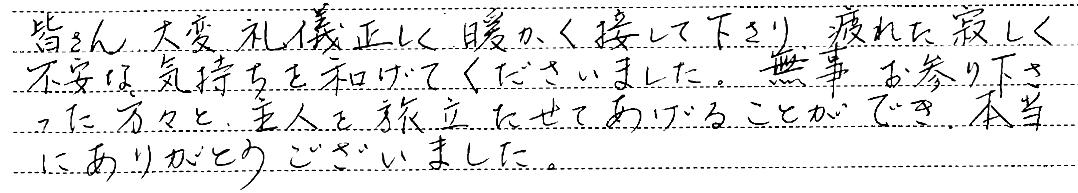 皆さん 大変 礼儀正しく 暖かく接して下さり、疲れた寂しく
不安な気持ちを和げてくださいました。無事 お参り下さ
った方々と、主人を旅立たせてあげることができ、本当
にありがとうございました。